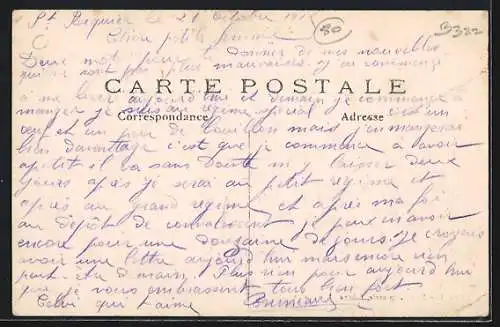 St Riquier le 21 Octobre 191
80
B382
Chère petite femme
Deux mots pour te donner de mes nouvelles
qui ne sont pas plus mauvaises. j'ai commencé
CARTE POSTALE
à me lever aujourd'hui et demain je commence à
manger je suis au régime spécial c'est un
Correspondance Adresse
œuf et un peu de bouillon mais j'en mangerai
bien davantage c'est que je commence à avoir
apetit il va sans doute m'y laisser deux
jours après je serai au petit régime et
après au grand régime et après ma foi
au dépôt de convalescent je peux en avoir
encore pour une douzaine de jours. je croyais
avoir une lettre aujourd'hui mais encore rien
peut-être demain. Plus rien pour aujourd'hui
que je vous embrassent tous bien fort
Celui qui t'aime